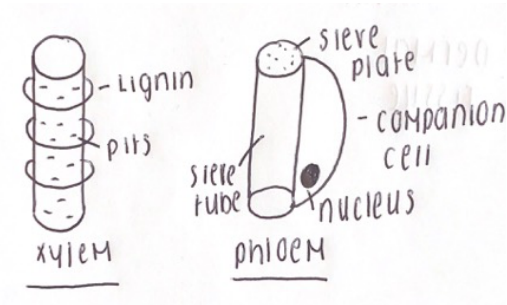 Lignin
pits
xylem
sieve
plate
companion
cell
sieve
tube
nucleus
phloem